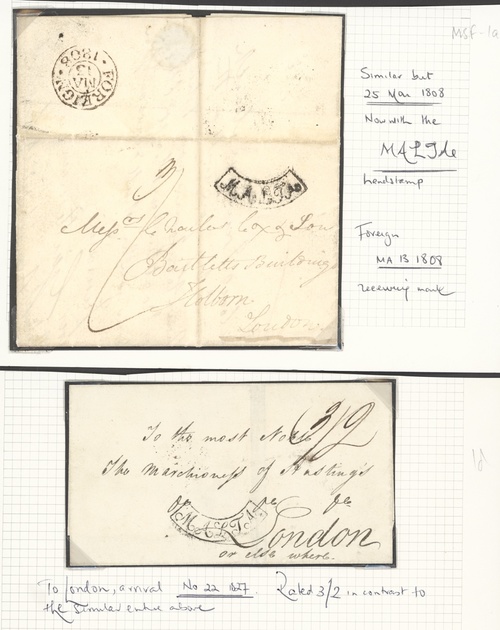 MSF-1a
FOREIGN
MA
13
1808
Similar but
25 Mar 1808
Now with the
MALTA
handstamp
MALTA
Messrs Charles Cox & Son
Bartletts Buildings
Holborn
London
Foreign
MA 13 1808
receiving mark
3/2
To the most Noble
The Marchioness of Hastings
&c &c &c
MALTA
London
or else where.
To London, arrival No 22 1827. Rated 3/2 in contrast to
the similar entire above